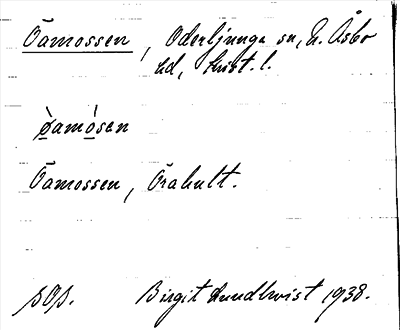 Öamossen, Oderljunga sn, N. Åsbo
hd, Krist. l.
ò̲amò̲sen
Öamossen, Örahult.
sOp. Birgit Lundkvist 1938.